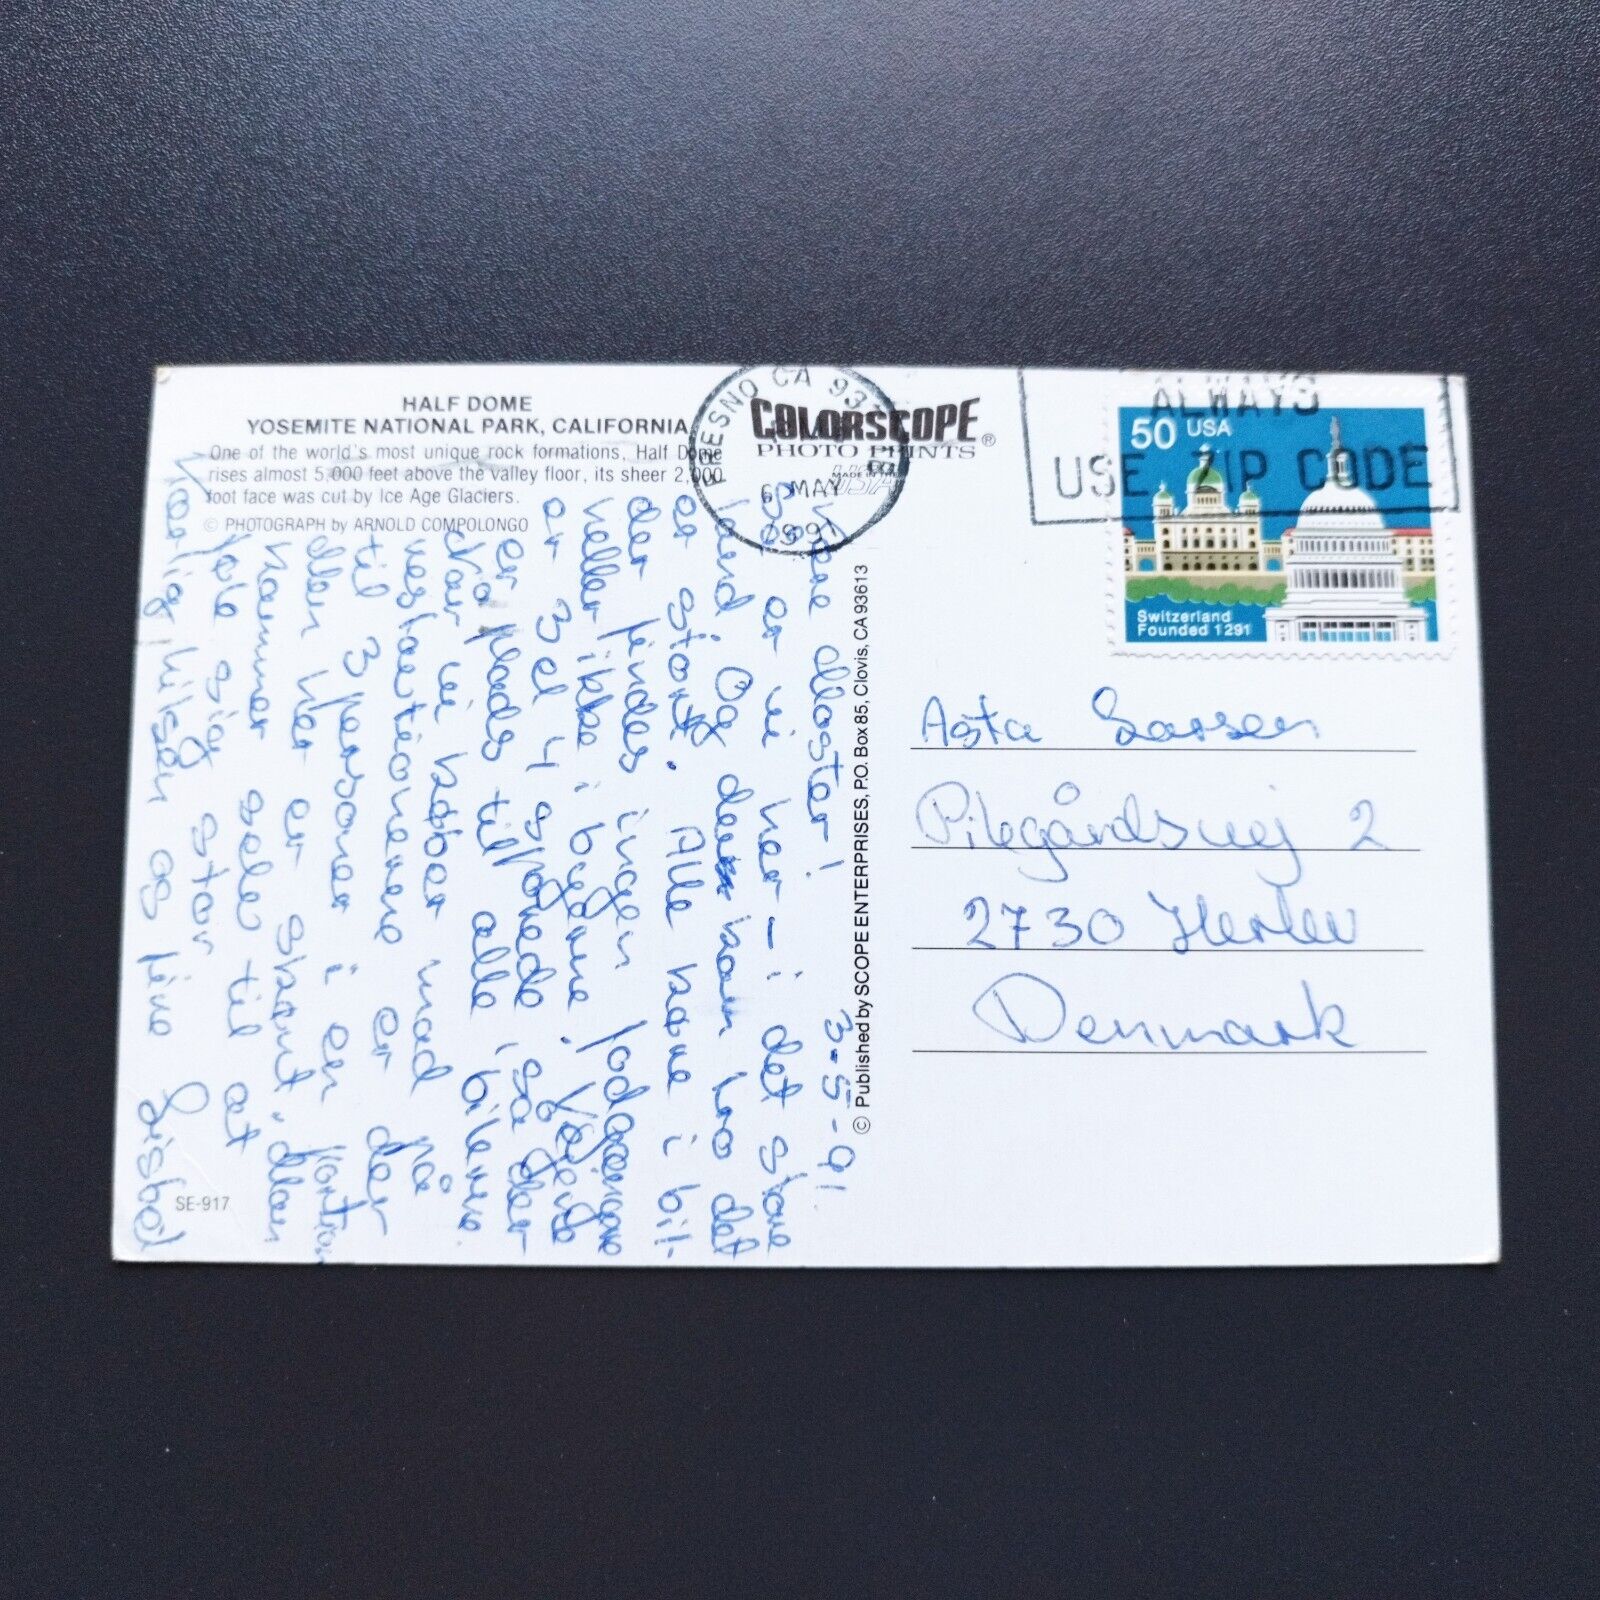 HALF DOME
YOSEMITE NATIONAL PARK, CALIFORNIA
One of the world's most unique rock formations, Half Dome
rises almost 5,000 feet above the valley floor, its sheer 2,000
foot face was cut by Ice Age Glaciers.
© PHOTOGRAPH by ARNOLD COMPOLONGO
FRESNO CA 93
6 MAY
1991
COLORSCOPE®
PHOTO PRINTS
MADE IN THE
USA
ALWAYS
USE ZIP CODE
50 USA
Switzerland
Founded 1291
3-5-91
Kære Moster!
Så er vi her - i det store
land. Og den kan tro det
er stort. Alle kører i bil.
der findes ingen fodgængere
heller ikke i byerne. Vejene
er 3 el 4 sporede så der
er plads til alle bilerne.
Når vi køber mad på
restaurationerne er der
til 3 personer i en portion
Men her er skønt, Man
kommer selv til at
føle sig stor
Kærlig hilsen og fine Lisbet
© Published by SCOPE ENTERPRISES, P.O. Box 85, Clovis, CA 93613
Asta Larsen
Pilegårdsvej 2
2730 Herlev
Denmark
SE-917